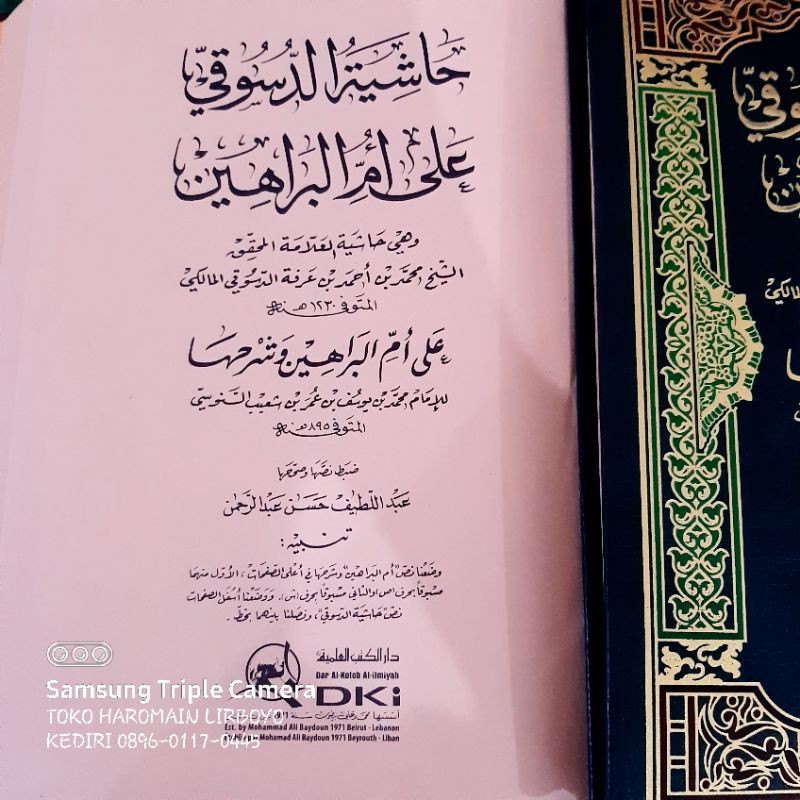 حَاشِيَةُ الدُّسُوقِيِّ
عَلَى أُمِّ البَرَاهِينِ
وهي حاشية العلامة المحقق
الشيخ محمد بن أحمد بن عرفة الدسوقي المالكي
المتوفى ١٢٣٠ هـ سنة
على أم البراهين وشرحها
للإمام محمد بن يوسف بن عمر بن شعيب السنوسي
المتوفى ٨٩٥ هـ سنة
ضبط نصها وصححها
عبد اللطيف حسن عبد الرحمن
تنبيه:
وضعنا نص "أم البراهين" وشرحها في أعلى الصفحات، الأول منهما
مسبوقاً بحرف (ص) والثاني مسبوقاً بحرف (ش). ووضعنا أسفل الصفحات
نص "حاشية الدسوقي"، وفصلنا بينهما بخط.
دار الكتب العلمية
Dar Al-Kotob Al-ilmiyah
DKi
أسسها محمد علي بيضون سنة
Est. by Mohammad Ali Baydoun 1971 Beirut - Lebanon
Mohamad Ali Baydoun 1971 Beyrouth - Liban
Samsung Triple Camera
TOKO HAROMAIN LIRBOYO
KEDIRI 0896-0117-0445
المالكي